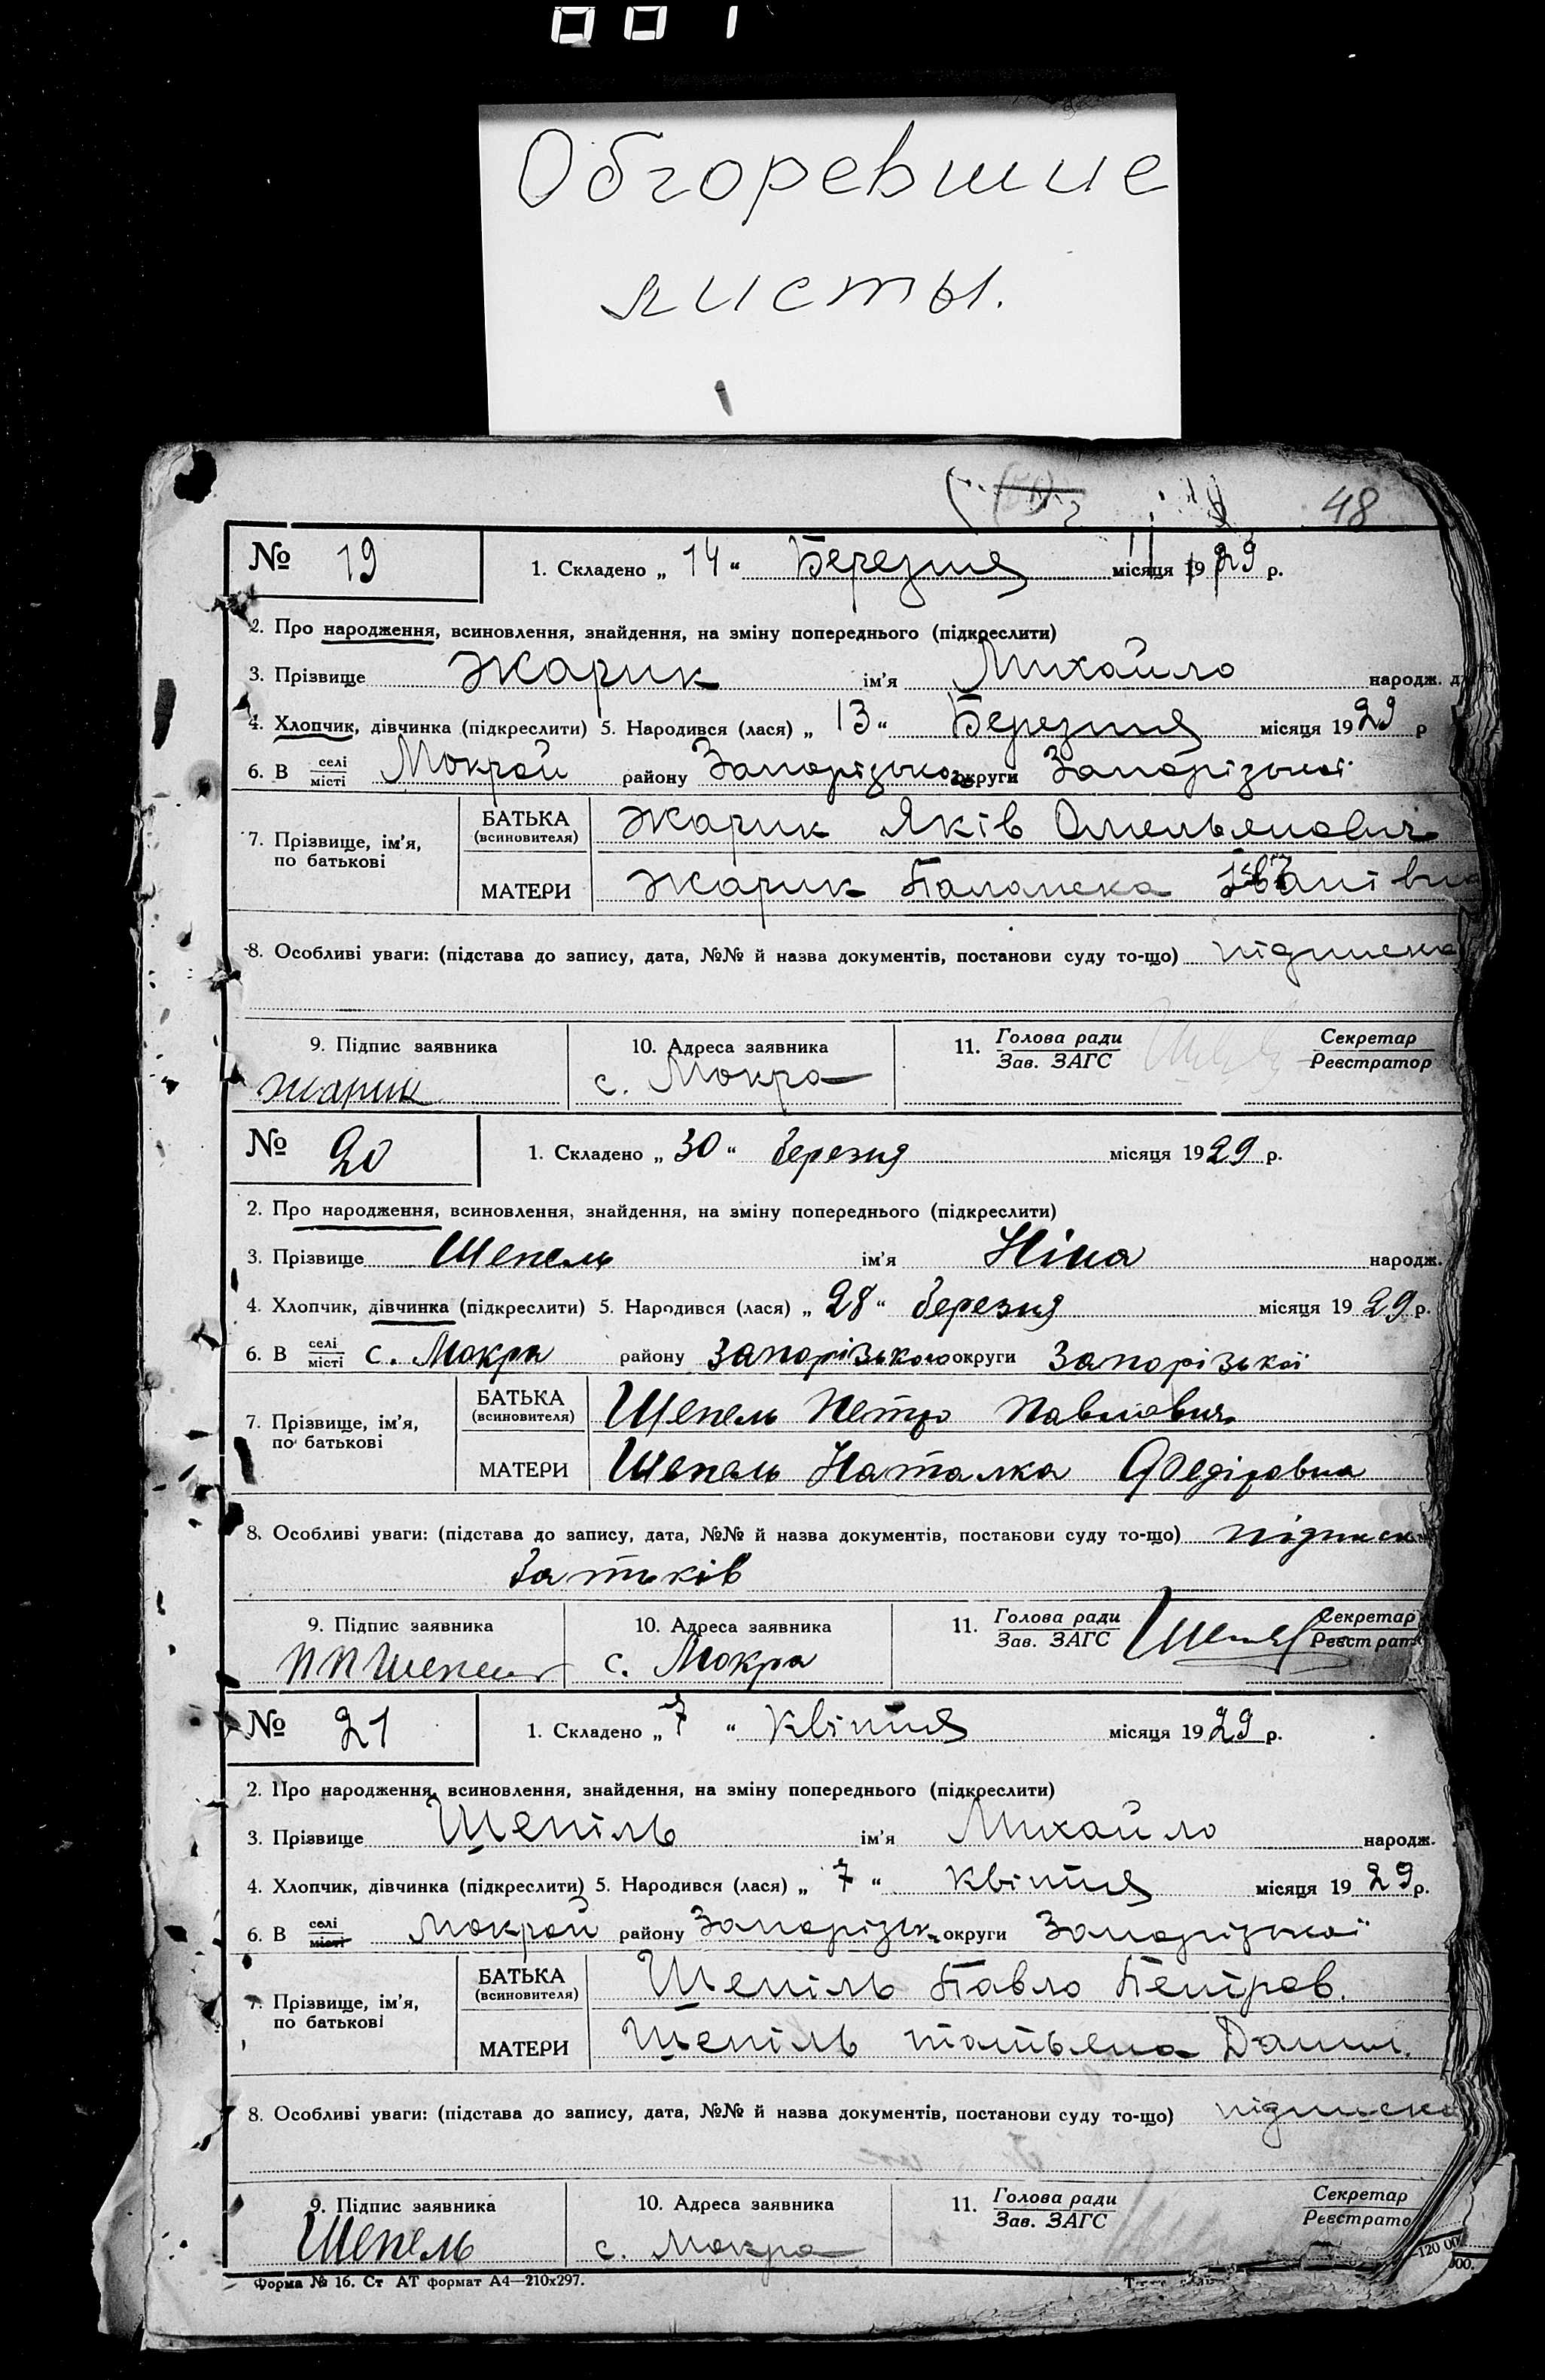 001
Обгоревшие
листы.
48
№ 19 1. Складено „ 14 “ Березня місяця 1929 р.
2. Про народження, всиновлення, знайдення, на зміну попереднього (підкреслити)
3. Прізвище Жарик ім'я Михайло народж.
4. Хлопчик, дівчинка (підкреслити) 5. Народився (лася) „ 13 “ Березня місяця 1929 р
6. В селі місті Мокрой району Запорізького округи Запорізької
7. Прізвище, ім'я, по батькові
БАТЬКА (всиновителя) Жарик Яків Омельянович
МАТЕРИ Жарик Палажка Іванівна
8. Особливі уваги: (підстава до запису, дата, №№ й назва документів, постанови суду то-що) підписка
9. Підпис заявника 10. Адреса заявника 11. Голова ради Зав. ЗАГС Секретар Реєстратор
Жарик с. Мокра
№ 20 1. Складено „ 30 “ березня місяця 1929 р.
2. Про народження, всиновлення, знайдення, на зміну попереднього (підкреслити)
3. Прізвище Шепель ім'я Ніна народж.
4. Хлопчик, дівчинка (підкреслити) 5. Народився (лася) „ 28 “ березня місяця 1929 р.
6. В селі місті с. Мокра району Запорізького округи Запорізької
7. Прізвище, ім'я, по батькові
БАТЬКА (всиновителя) Шепель Петро Павлович
МАТЕРИ Шепель Наталка Федіровна
8. Особливі уваги: (підстава до запису, дата, №№ й назва документів, постанови суду то-що) підписка
батьків
9. Підпис заявника 10. Адреса заявника 11. Голова ради Зав. ЗАГС Секретар Реєстрат
ПП Шепель с. Мокра
№ 21 1. Складено „ 7 “ Квітня місяця 1929 р.
2. Про народження, всиновлення, знайдення, на зміну попереднього (підкреслити)
3. Прізвище Шепіль ім'я Михайло народж.
4. Хлопчик, дівчинка (підкреслити) 5. Народився (лася) „ 7 “ Квітня місяця 1929 р.
6. В селі місті Мокрой району Запорізьк. округи Запорізької
7. Прізвище, ім'я, по батькові
БАТЬКА (всиновителя) Шепіль Павло Петров.
МАТЕРИ Шепіль татьяна Данил.
8. Особливі уваги: (підстава до запису, дата, №№ й назва документів, постанови суду то-що) підписка
9. Підпис заявника 10. Адреса заявника 11. Голова ради Зав. ЗАГС Секретар Реєстрато
Шепель с. Мокра
Форма № 16. Ст АТ формат А4—210х297.